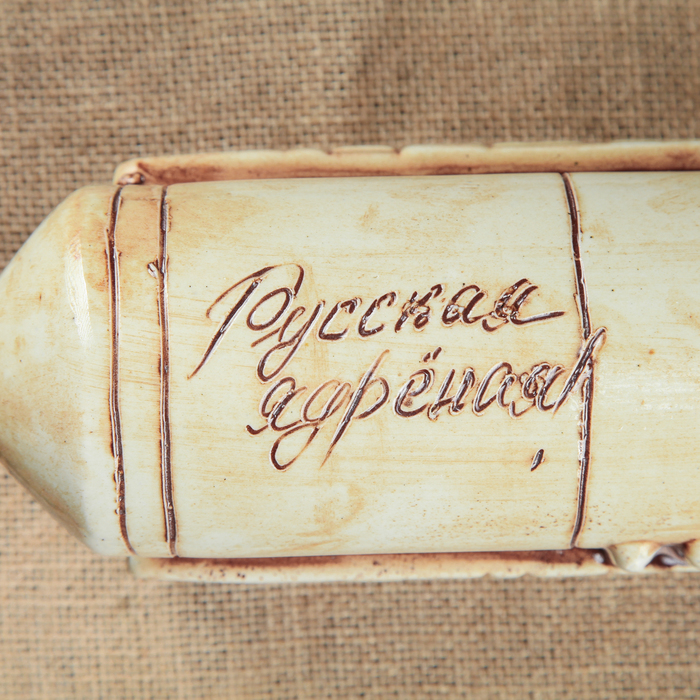 Русская
ядрёная!